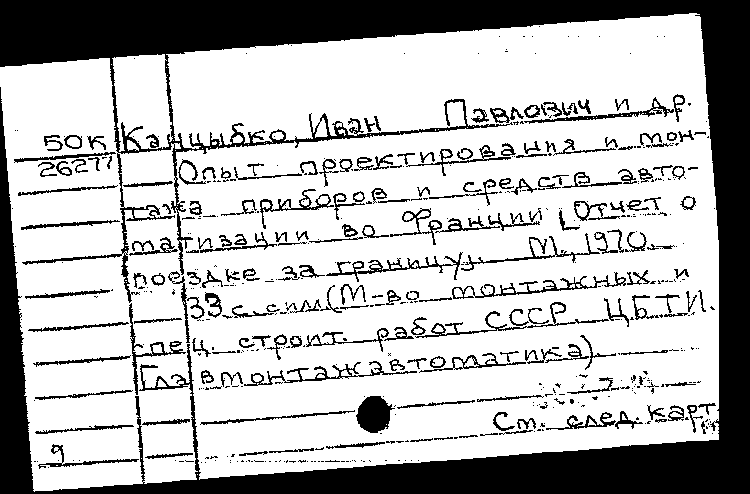 50К Канцыбко, Иван Павлович и др.
26277 Опыт проектирования и мон-
тажа приборов и средств авто-
матизации во Франции [Отчет о
поездке за границу]. М., 1970.
33 с. с илл (М-во монтажных и
спец. строит. работ СССР. ЦБТИ.
Главмонтажавтоматика).
См. след. карт
9